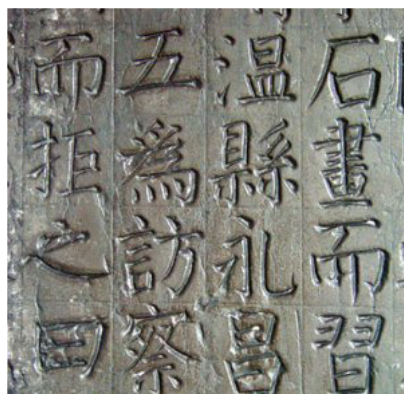 石畫而習
温縣礼昌
五為訪察
而拒之曰